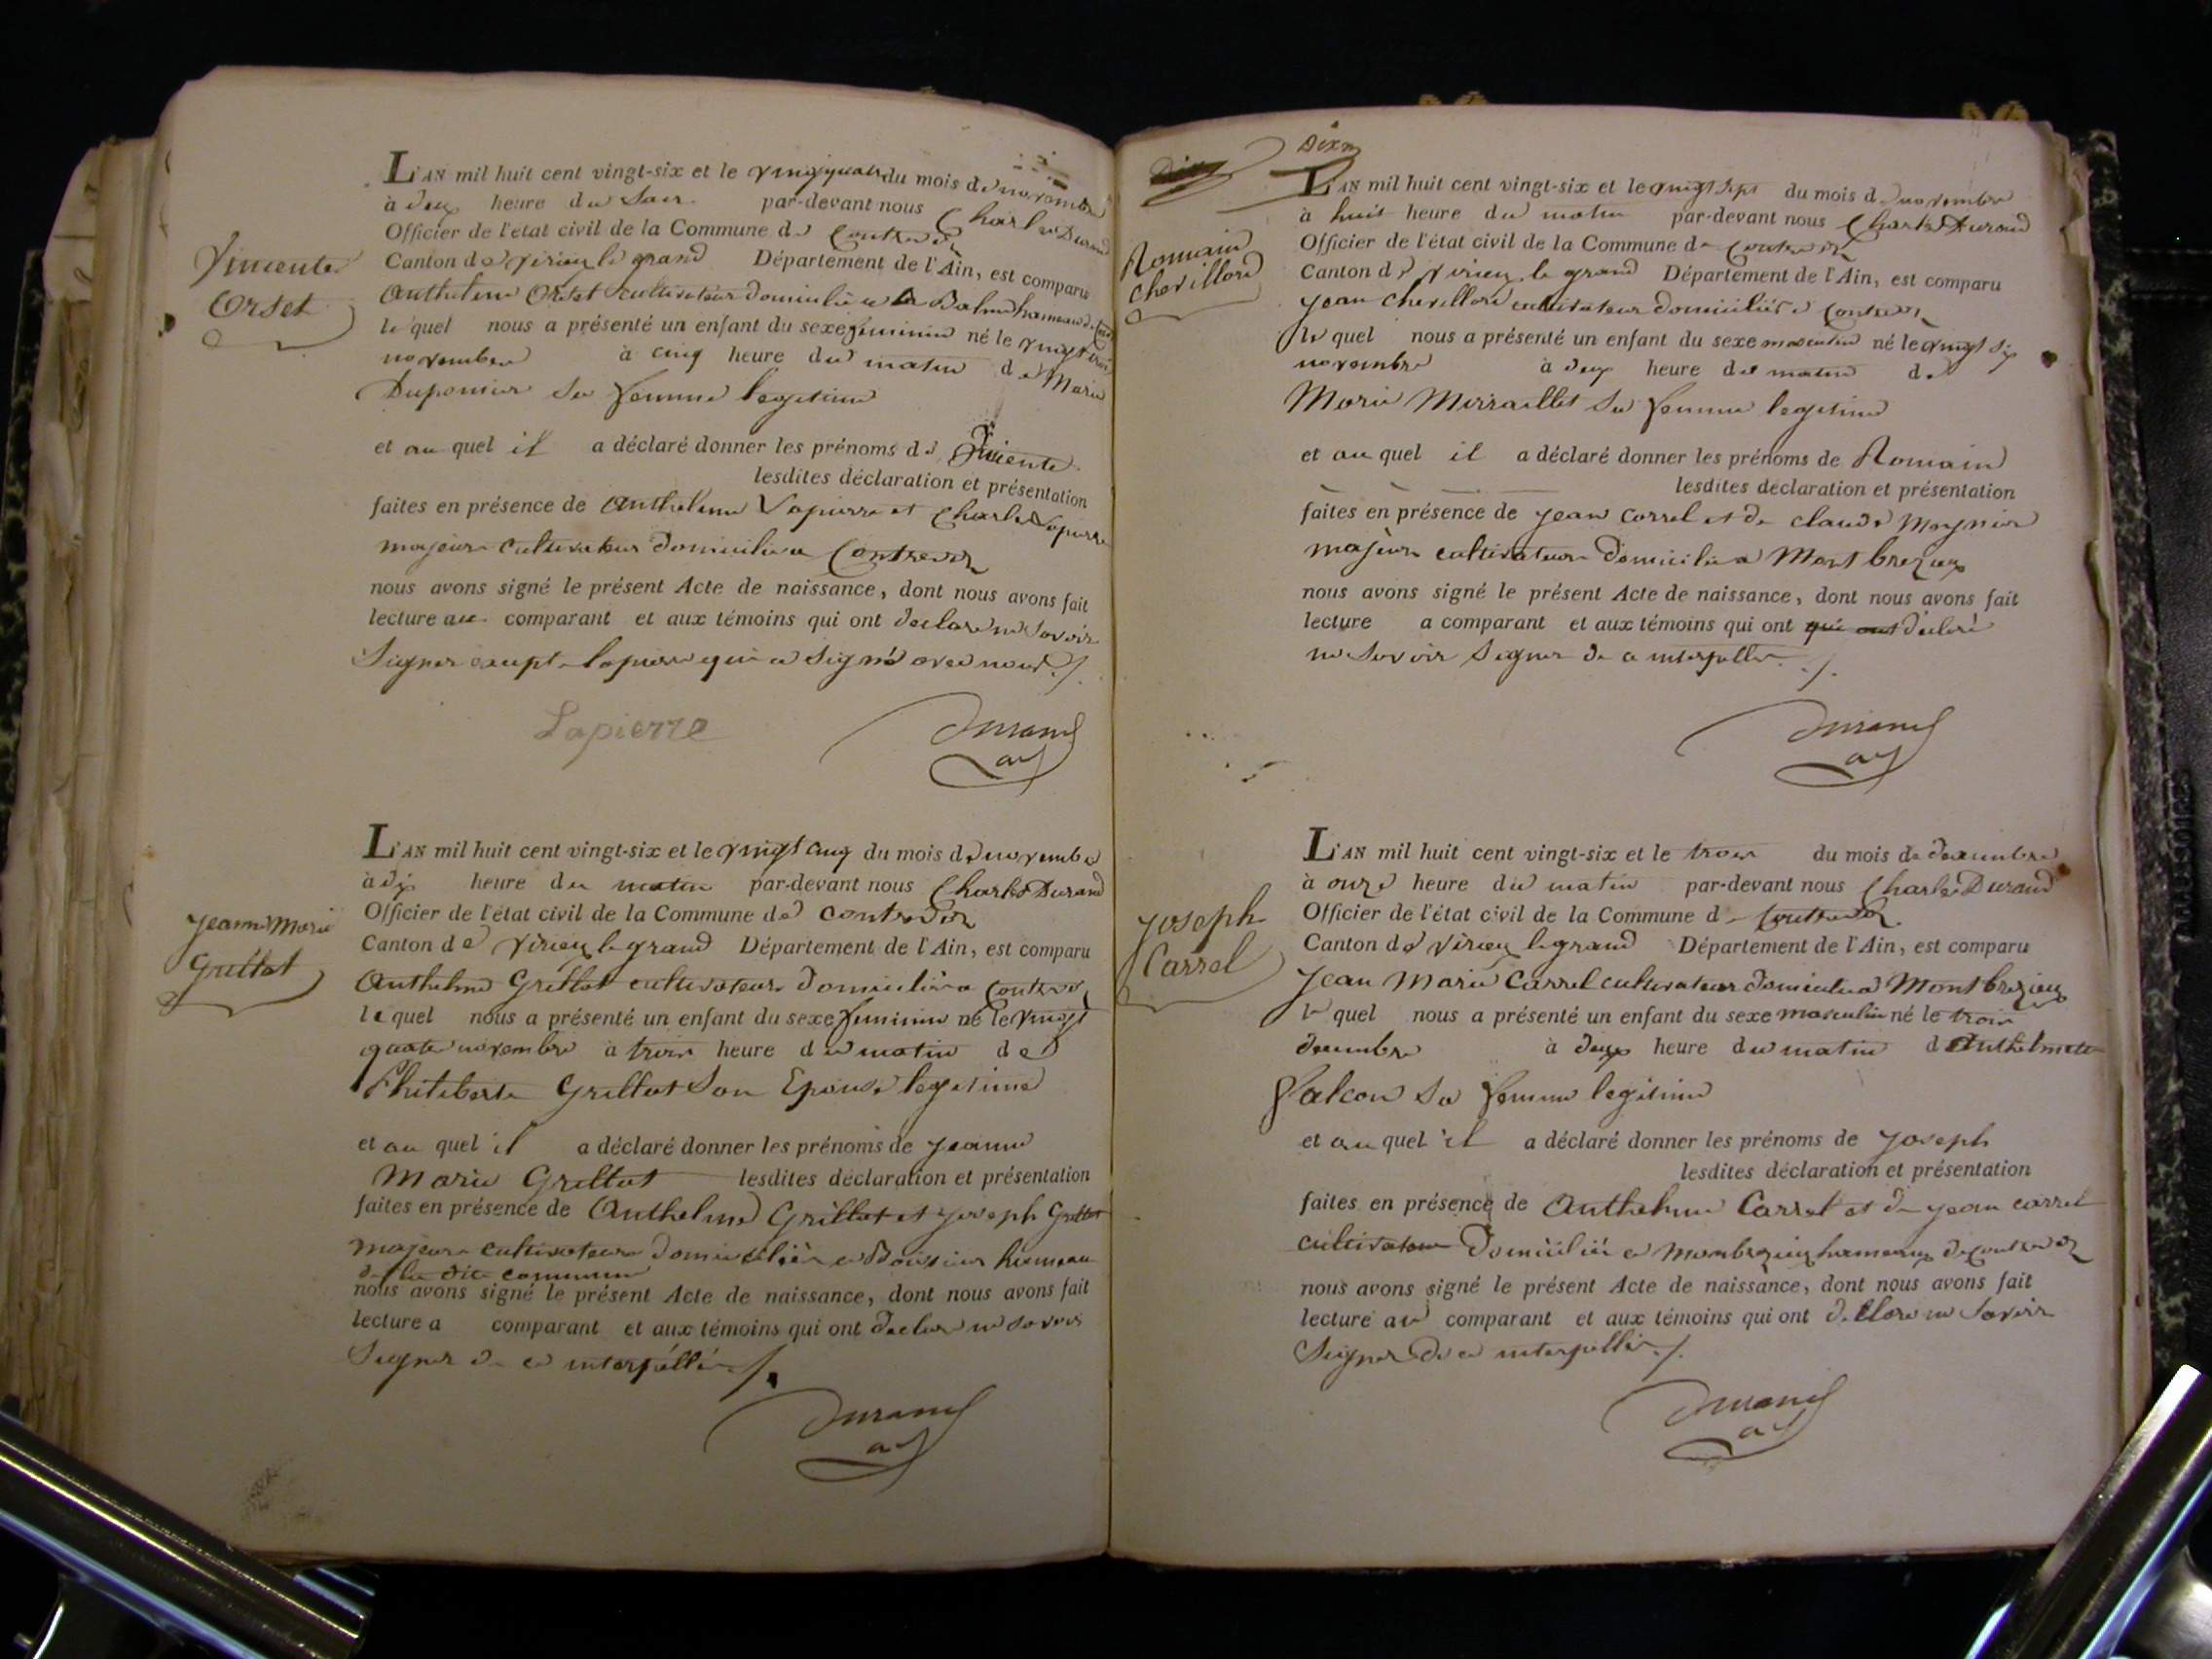 L'AN mil huit cent vingt-six et le vingt quatre du mois de novembre
à deux heure du Soir par-devant nous Charles Durand
Officier de l'état civil de la Commune de Contrevoz
Canton de virieu le grand Département de l'Ain, est comparu
Vincente
Orset
Anthelme Orset cultivateur domicilié a La Balme hameau de
le quel nous a présenté un enfant du sexe feminin né le vingt trois
novembre à cinq heure du matin de Marie
Duponier Sa femme legitime
et au quel il a déclaré donner les prénoms de Vincente
lesdites déclaration et présentation
faites en présence de Anthelme Lapierre et Charles Lapierre
majeurs cultivateur domicilié a Contrevoz
nous avons signé le présent Acte de naissance, dont nous avons fait
lecture au comparant et aux témoins qui ont declaré ne Savoir
Signer except lapierre qui a Signé avec nous ./.
Lapierre Durand
L'AN mil huit cent vingt-six et le vingt cinq du mois de novembre
à dix heure du matin par-devant nous Charles Durand
Officier de l'état civil de la Commune de contrevoz
Canton de virieu le grand Département de l'Ain, est comparu
Jeanne Marie
Grillot
Anthelme Grillot cultivateur domicilié a Contrevoz
le quel nous a présenté un enfant du sexe feminin né le vingt
quatre novembre à trois heure du matin de
Philiberte Grillot Son Epouse legitime
et au quel il a déclaré donner les prénoms de jeanne
Marie Grillot lesdites déclaration et présentation
faites en présence de Anthelme Grillot et joseph Grillot
majeurs cultivateurs domiciliés a Boissieu hameau
de la dite commune
nous avons signé le présent Acte de naissance, dont nous avons fait
lecture a comparant et aux témoins qui ont declaré ne Savoir
Signer de ce interpéllés ./.
Durand
Dix
L'AN mil huit cent vingt-six et le vingt sept du mois de novembre
à huit heure du matin par-devant nous Charles Durand
Officier de l'état civil de la Commune de Contrevoz
Canton de virieu le grand Département de l'Ain, est comparu
Romain
Chevillard
jean chevillard cultivateur domicilié a Contrevoz
le quel nous a présenté un enfant du sexe masculin né le vingt six
novembre à deux heure du matin de
Marie Mirraillet Sa femme legitime
et au quel il a déclaré donner les prénoms de Romain
lesdites déclaration et présentation
faites en présence de jean Carrel et de claude Meynier
majeurs cultivateurs domicilié a Mont brezieux
nous avons signé le présent Acte de naissance, dont nous avons fait
lecture a comparant et aux témoins qui ont qui ont déclaré
ne Savoir Signer de ce interpellés ./.
Durand
L'AN mil huit cent vingt-six et le trois du mois de decembre
à onze heure du matin par-devant nous Charles Durand
Officier de l'état civil de la Commune de Contrevoz
Canton de virieu le grand Département de l'Ain, est comparu
joseph
Carrel
Jean Marie Carrel cultivateur domicilié a Mont brezieux
le quel nous a présenté un enfant du sexe masculin né le trois
decembre à deux heure du matin d Anthelmette
Falcon Sa femme legitime
et au quel il a déclaré donner les prénoms de joseph
lesdites déclaration et présentation
faites en présence de Anthelme Carrel et de jean carrel
cultivateur domicilié a Monbrezieux hameaux de contrevoz
nous avons signé le présent Acte de naissance, dont nous avons fait
lecture au comparant et aux témoins qui ont declaré ne Savoir
Signer de ce interpellés ./.
Durand